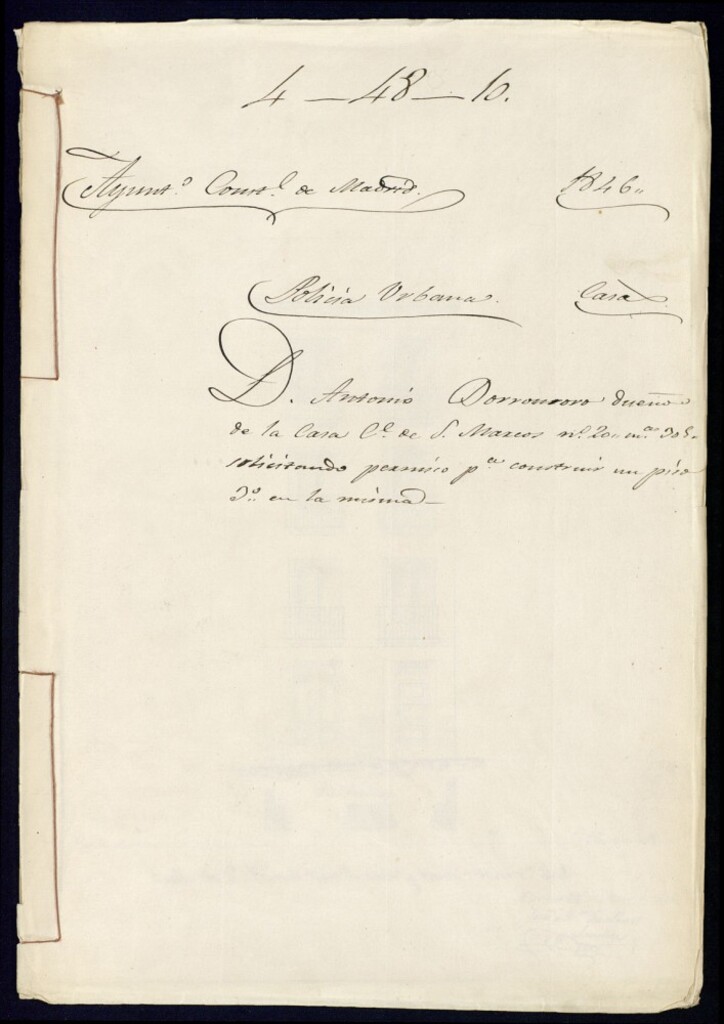 4 – 48 – 10.
Ayunt.º Const.l de Madrid. 1846,,
Policia Urbana. Casa
D. Antonio Dorronsoro dueño
de la Casa C.e de S. Marcos nº. 20,, m.na
solicitando permiso p.a construir un piso
3.º en la misma—